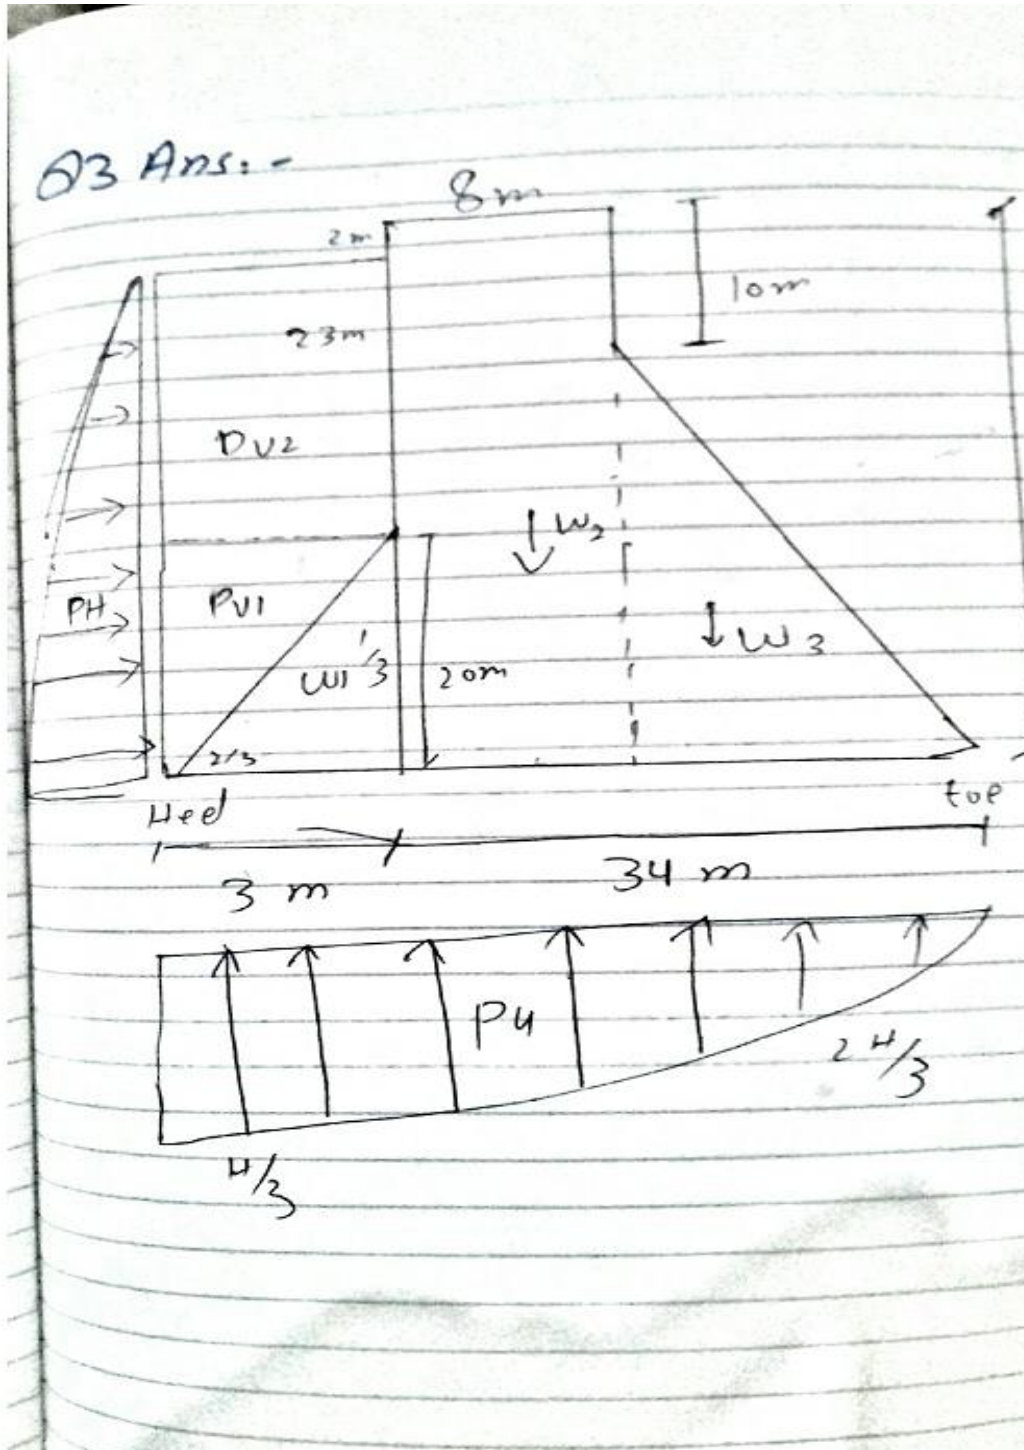 Q3 Ans:-
8m
2m
10m
23m
PV2
W2
PH
PV1
W1
1/3
20m
W3
2/3
Heel
toe
3 m
34 m
Pu
2H/3
H/3